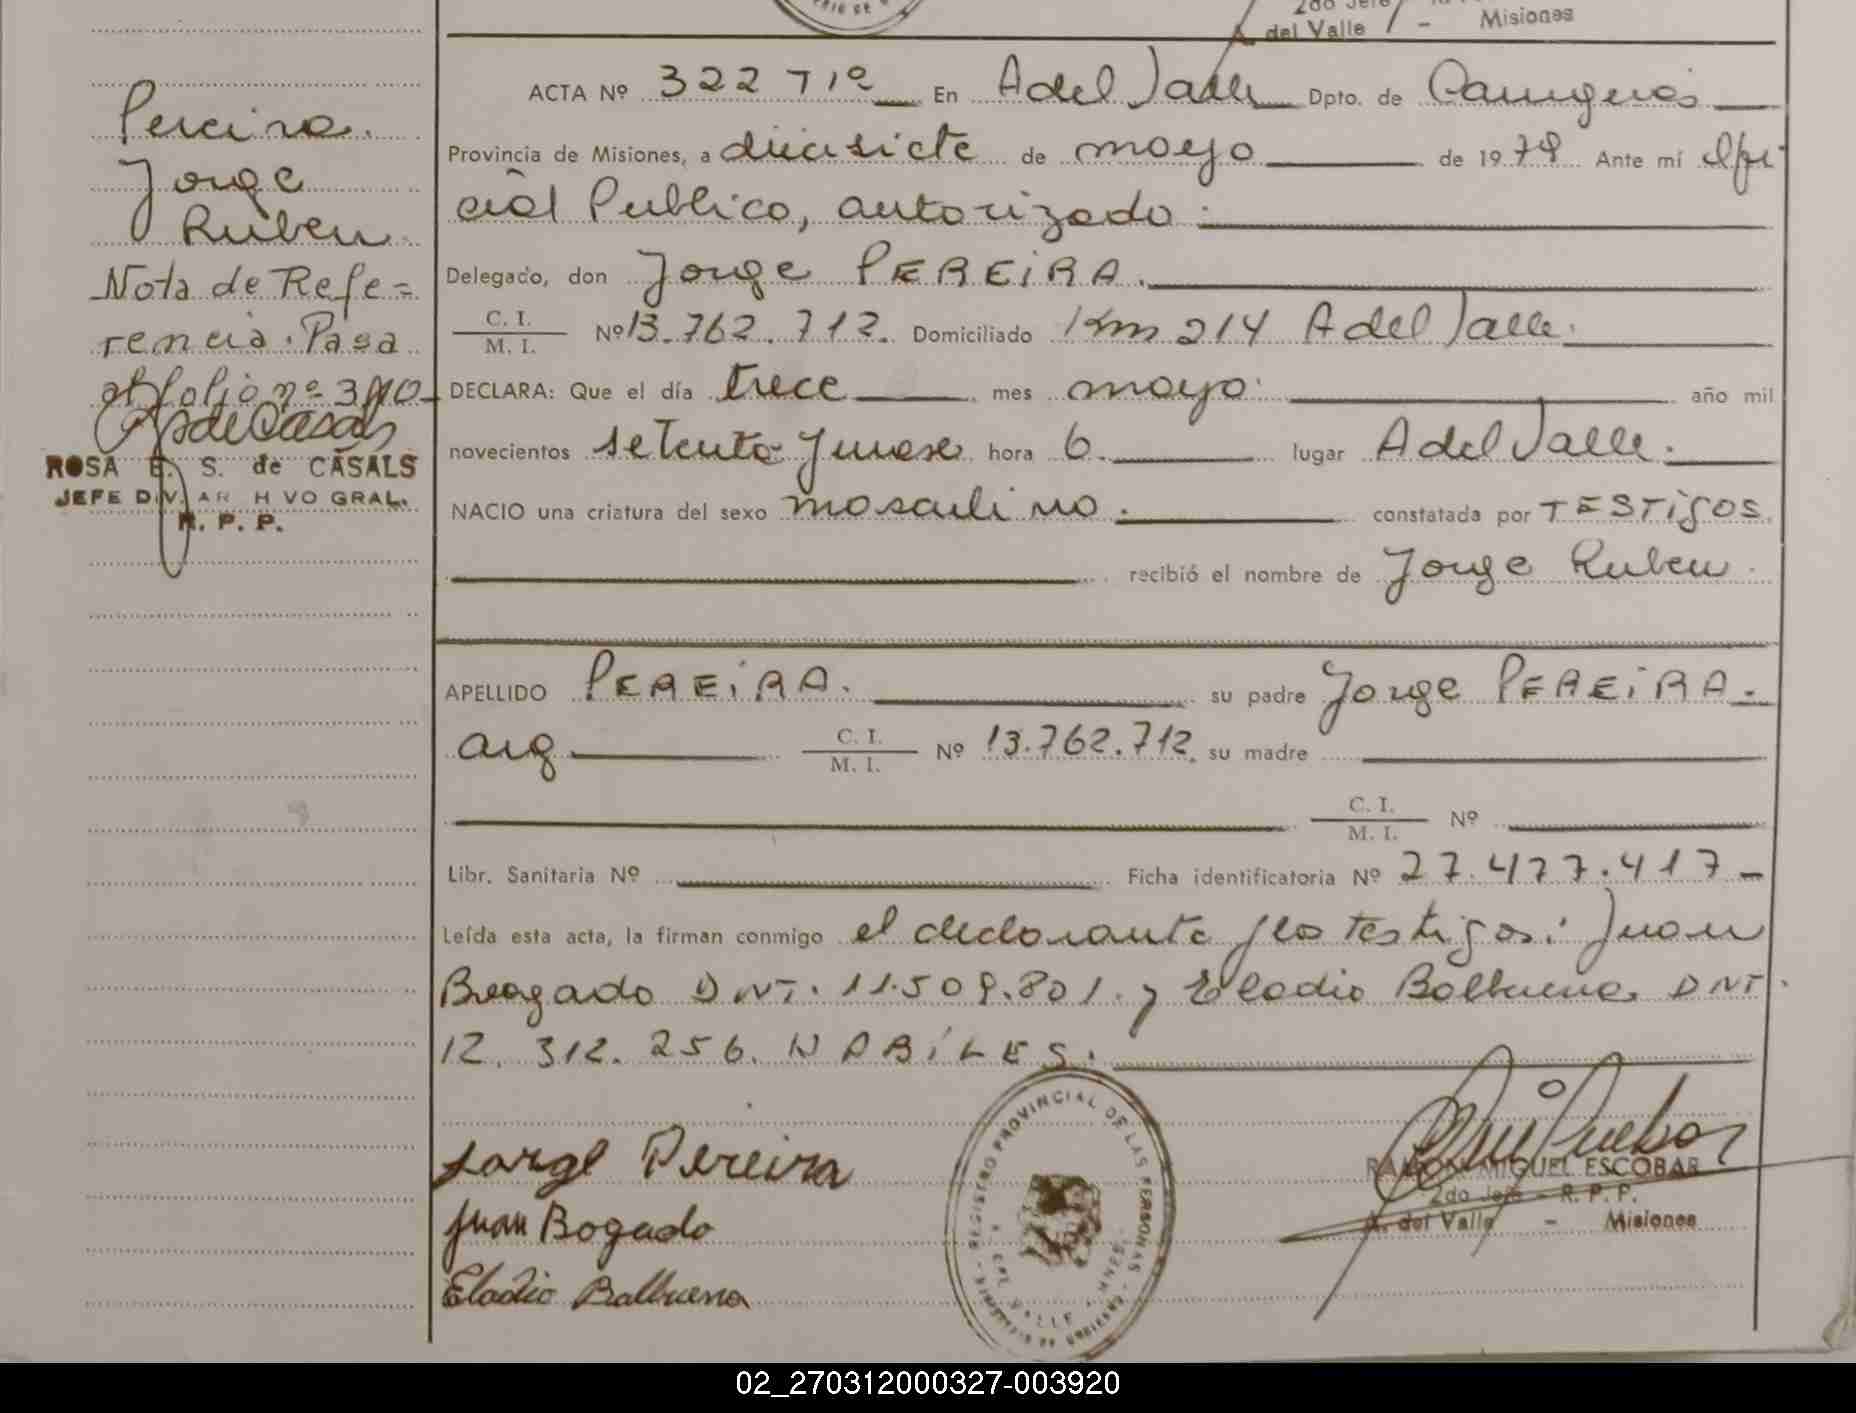 2do Jefe
del Valle - Misiones
ACTA Nº 322 T1º En A del Valle Dpto. de Cainguás
Pereira.
Jorge
Ruben
Provincia de Misiones, a diecisiete de mayo de 1979 Ante mí Ofi-
cial Publico, autorizado.
Delegado, don Jorge PEREiRA.
C. I.
M. I. Nº 13.762.712. Domiciliado Km 214 A del Valle.
Nota de Refe=
rencia. Pasa
al folio nº 390
DECLARA: Que el día trece mes mayo. año mil
novecientos setenta y nueve hora 6. lugar A del Valle.
ROSA E. S. de CASALS
JEFE DIV. ARCHIVO GRAL.
R. P. P.
NACIO una criatura del sexo masculino. constatada por TESTigos.
recibió el nombre de Jorge Ruben.
APELLIDO PEREiRA. su padre Jorge PEREiRA.
arg C. I.
M. I. Nº 13.762.712, su madre
C. I.
M. I. Nº
Libr. Sanitaria Nº Ficha identificatoria Nº 27.477.417-
Leída esta acta, la firman conmigo el declarante y los testigos: Juan
Bogado DNI. 11.509.801. y Eladio Balbuena DNI.
12.312.256. HABiLES.
Jorge Pereira
Juan Bogado
Eladio Balbuena
REGISTRO PROVINCIAL DE LAS PERSONAS
RAMON MIGUEL ESCOBAR
2do Jefe - R. P. P.
A. del Valle - Misiones
02_270312000327-003920